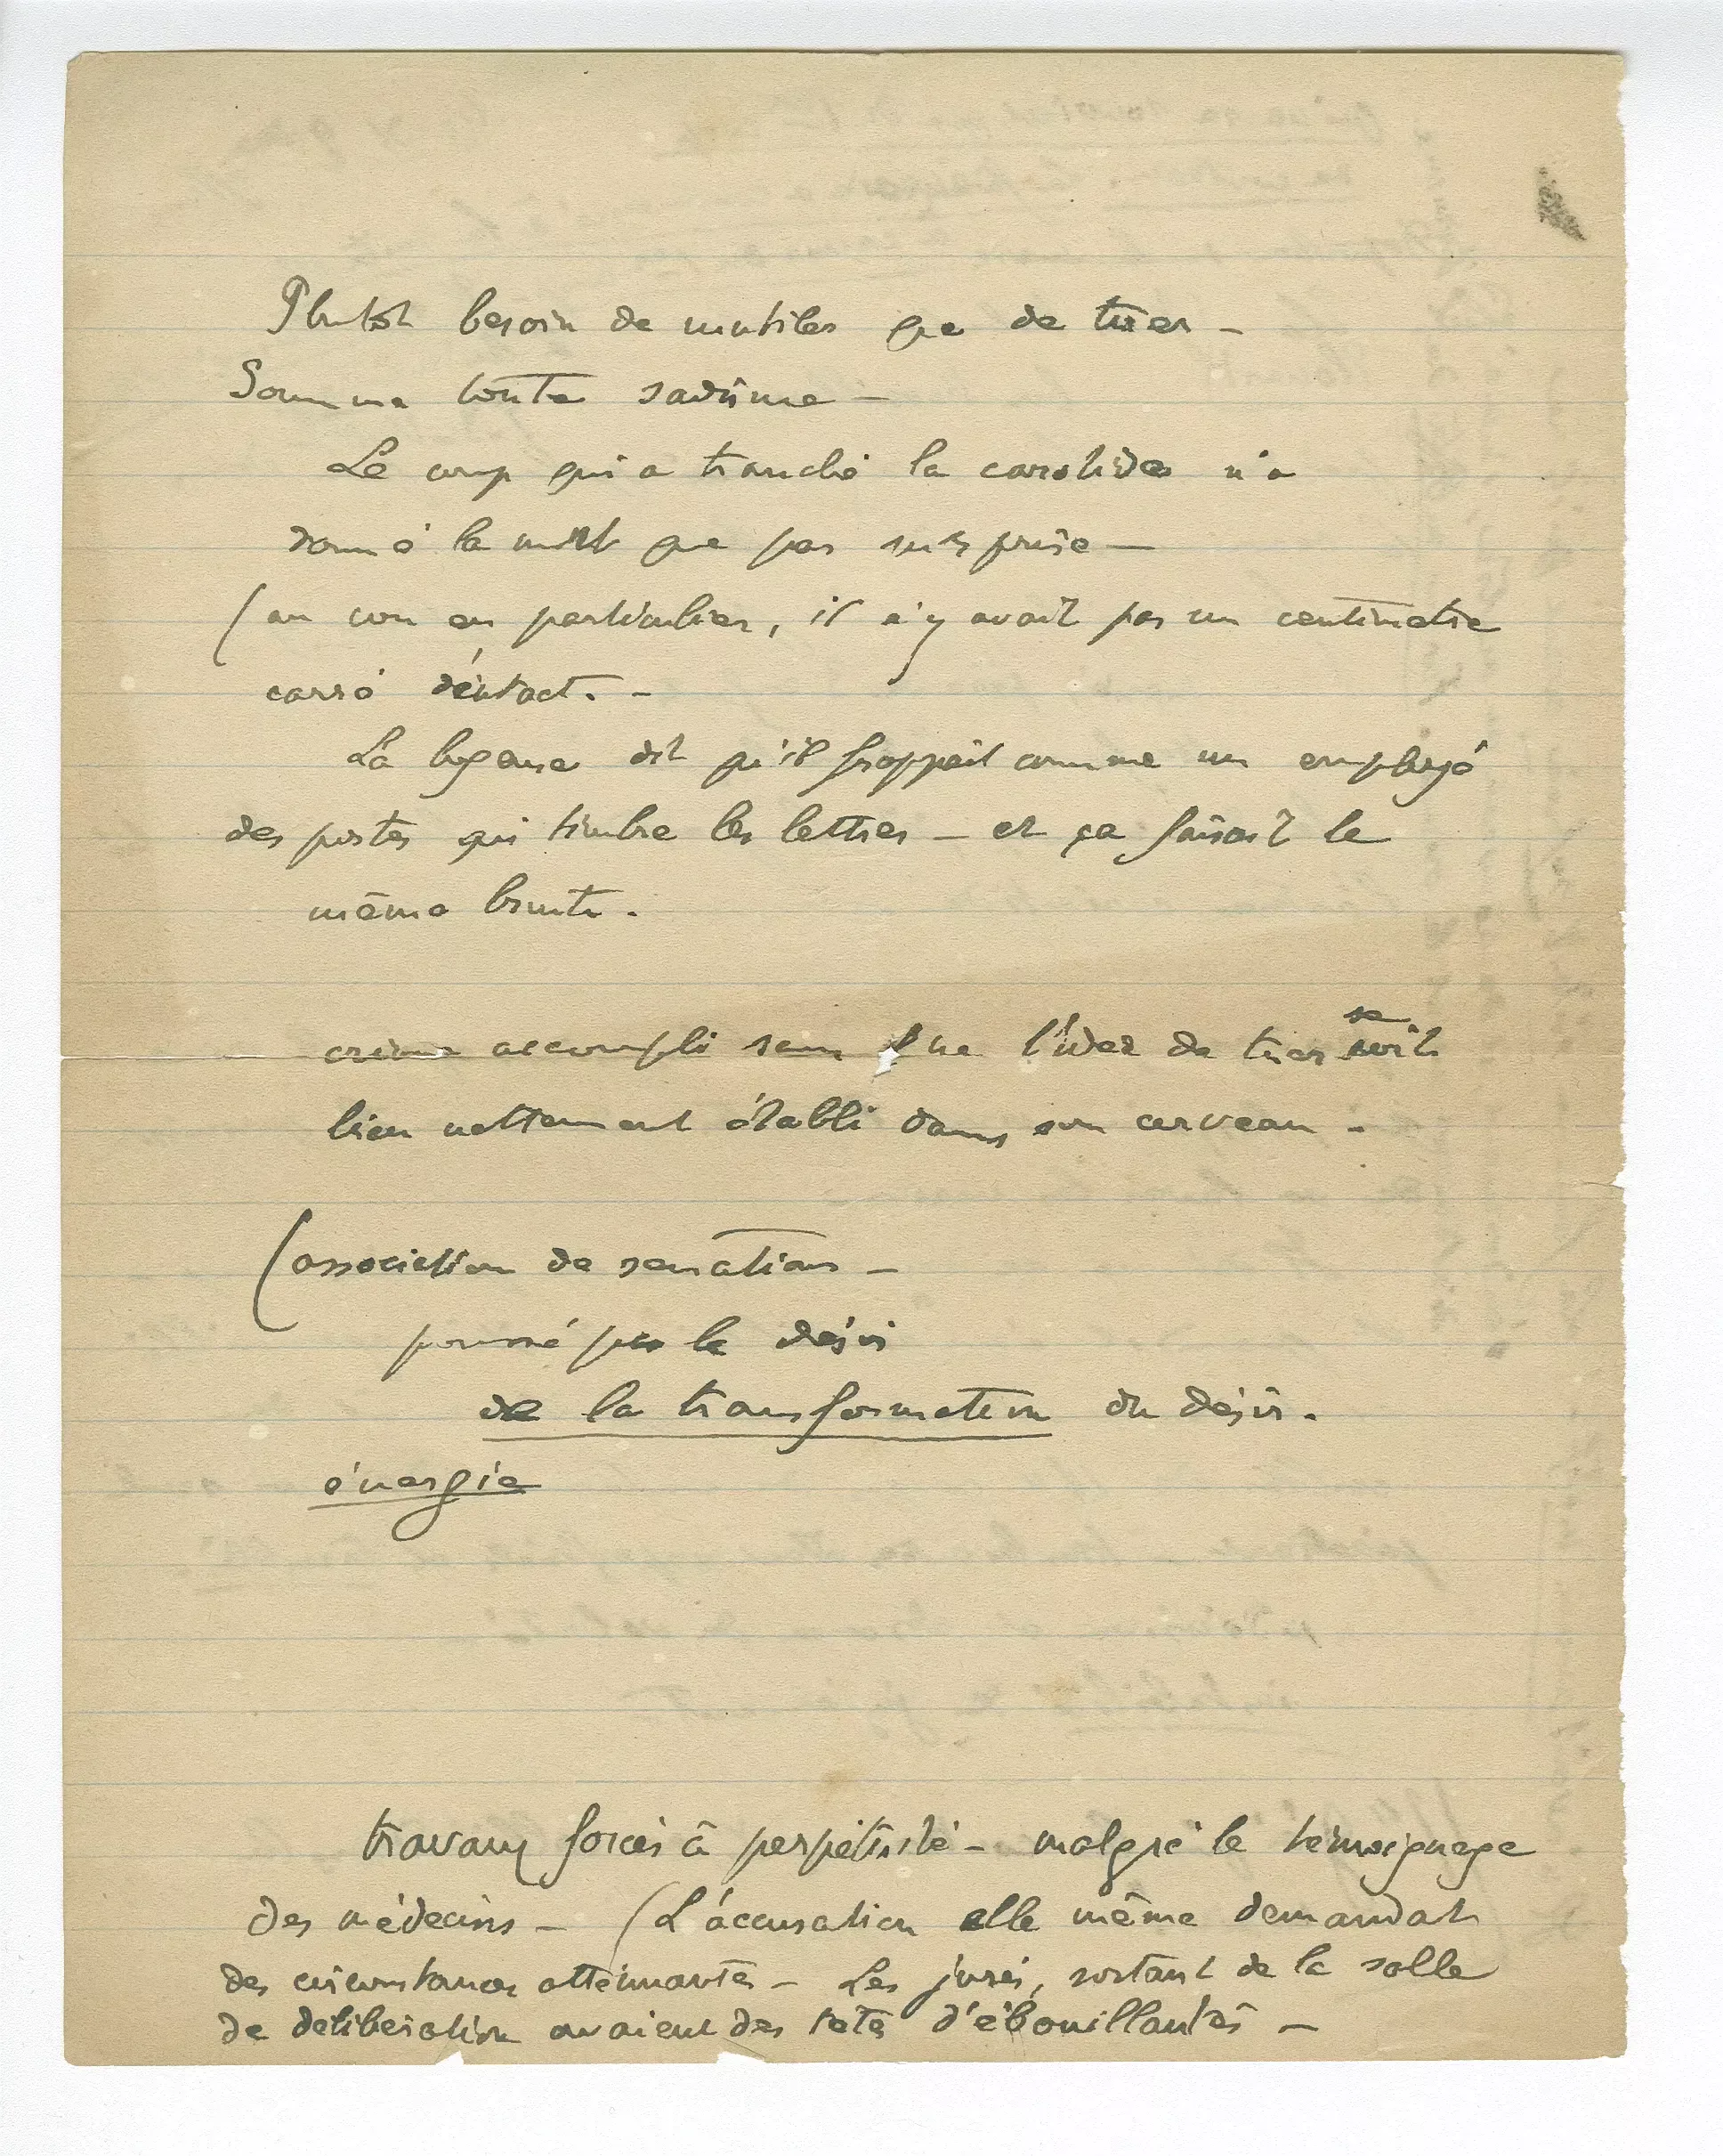 Plutôt besoin de mutiler que de tuer –
Somme toute sadisme –
Le coup qui a tranché la carotide n'a
donné la mort que par surprise –
(au cou en particulier, il n'y avait pas un centimètre
carré d'intact. –
La logeuse dit qu'il frappait comme un employé
des postes qui timbre les lettres – et ça faisait le
même bruit.
crime accompli sans que l'idée de tuer se soit
bien nettement établi dans son cerveau –
(association de sensations –
poussé par le désir
de la transformation du désir.
énergie
travaux forcés à perpétuité – malgré le témoignage
des médecins – (L'accusation elle même demandait
des circonstances atténuantes – Les jurés, sortant de la salle
de délibération avaient des têtes d'ébouillantés –